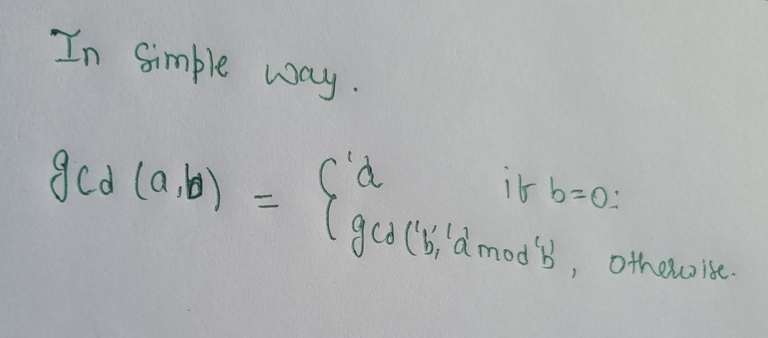 In simple way.
gcd (a,b) = { 'a' if b=0:
gcd ('b', 'a' mod 'b', otherwise.